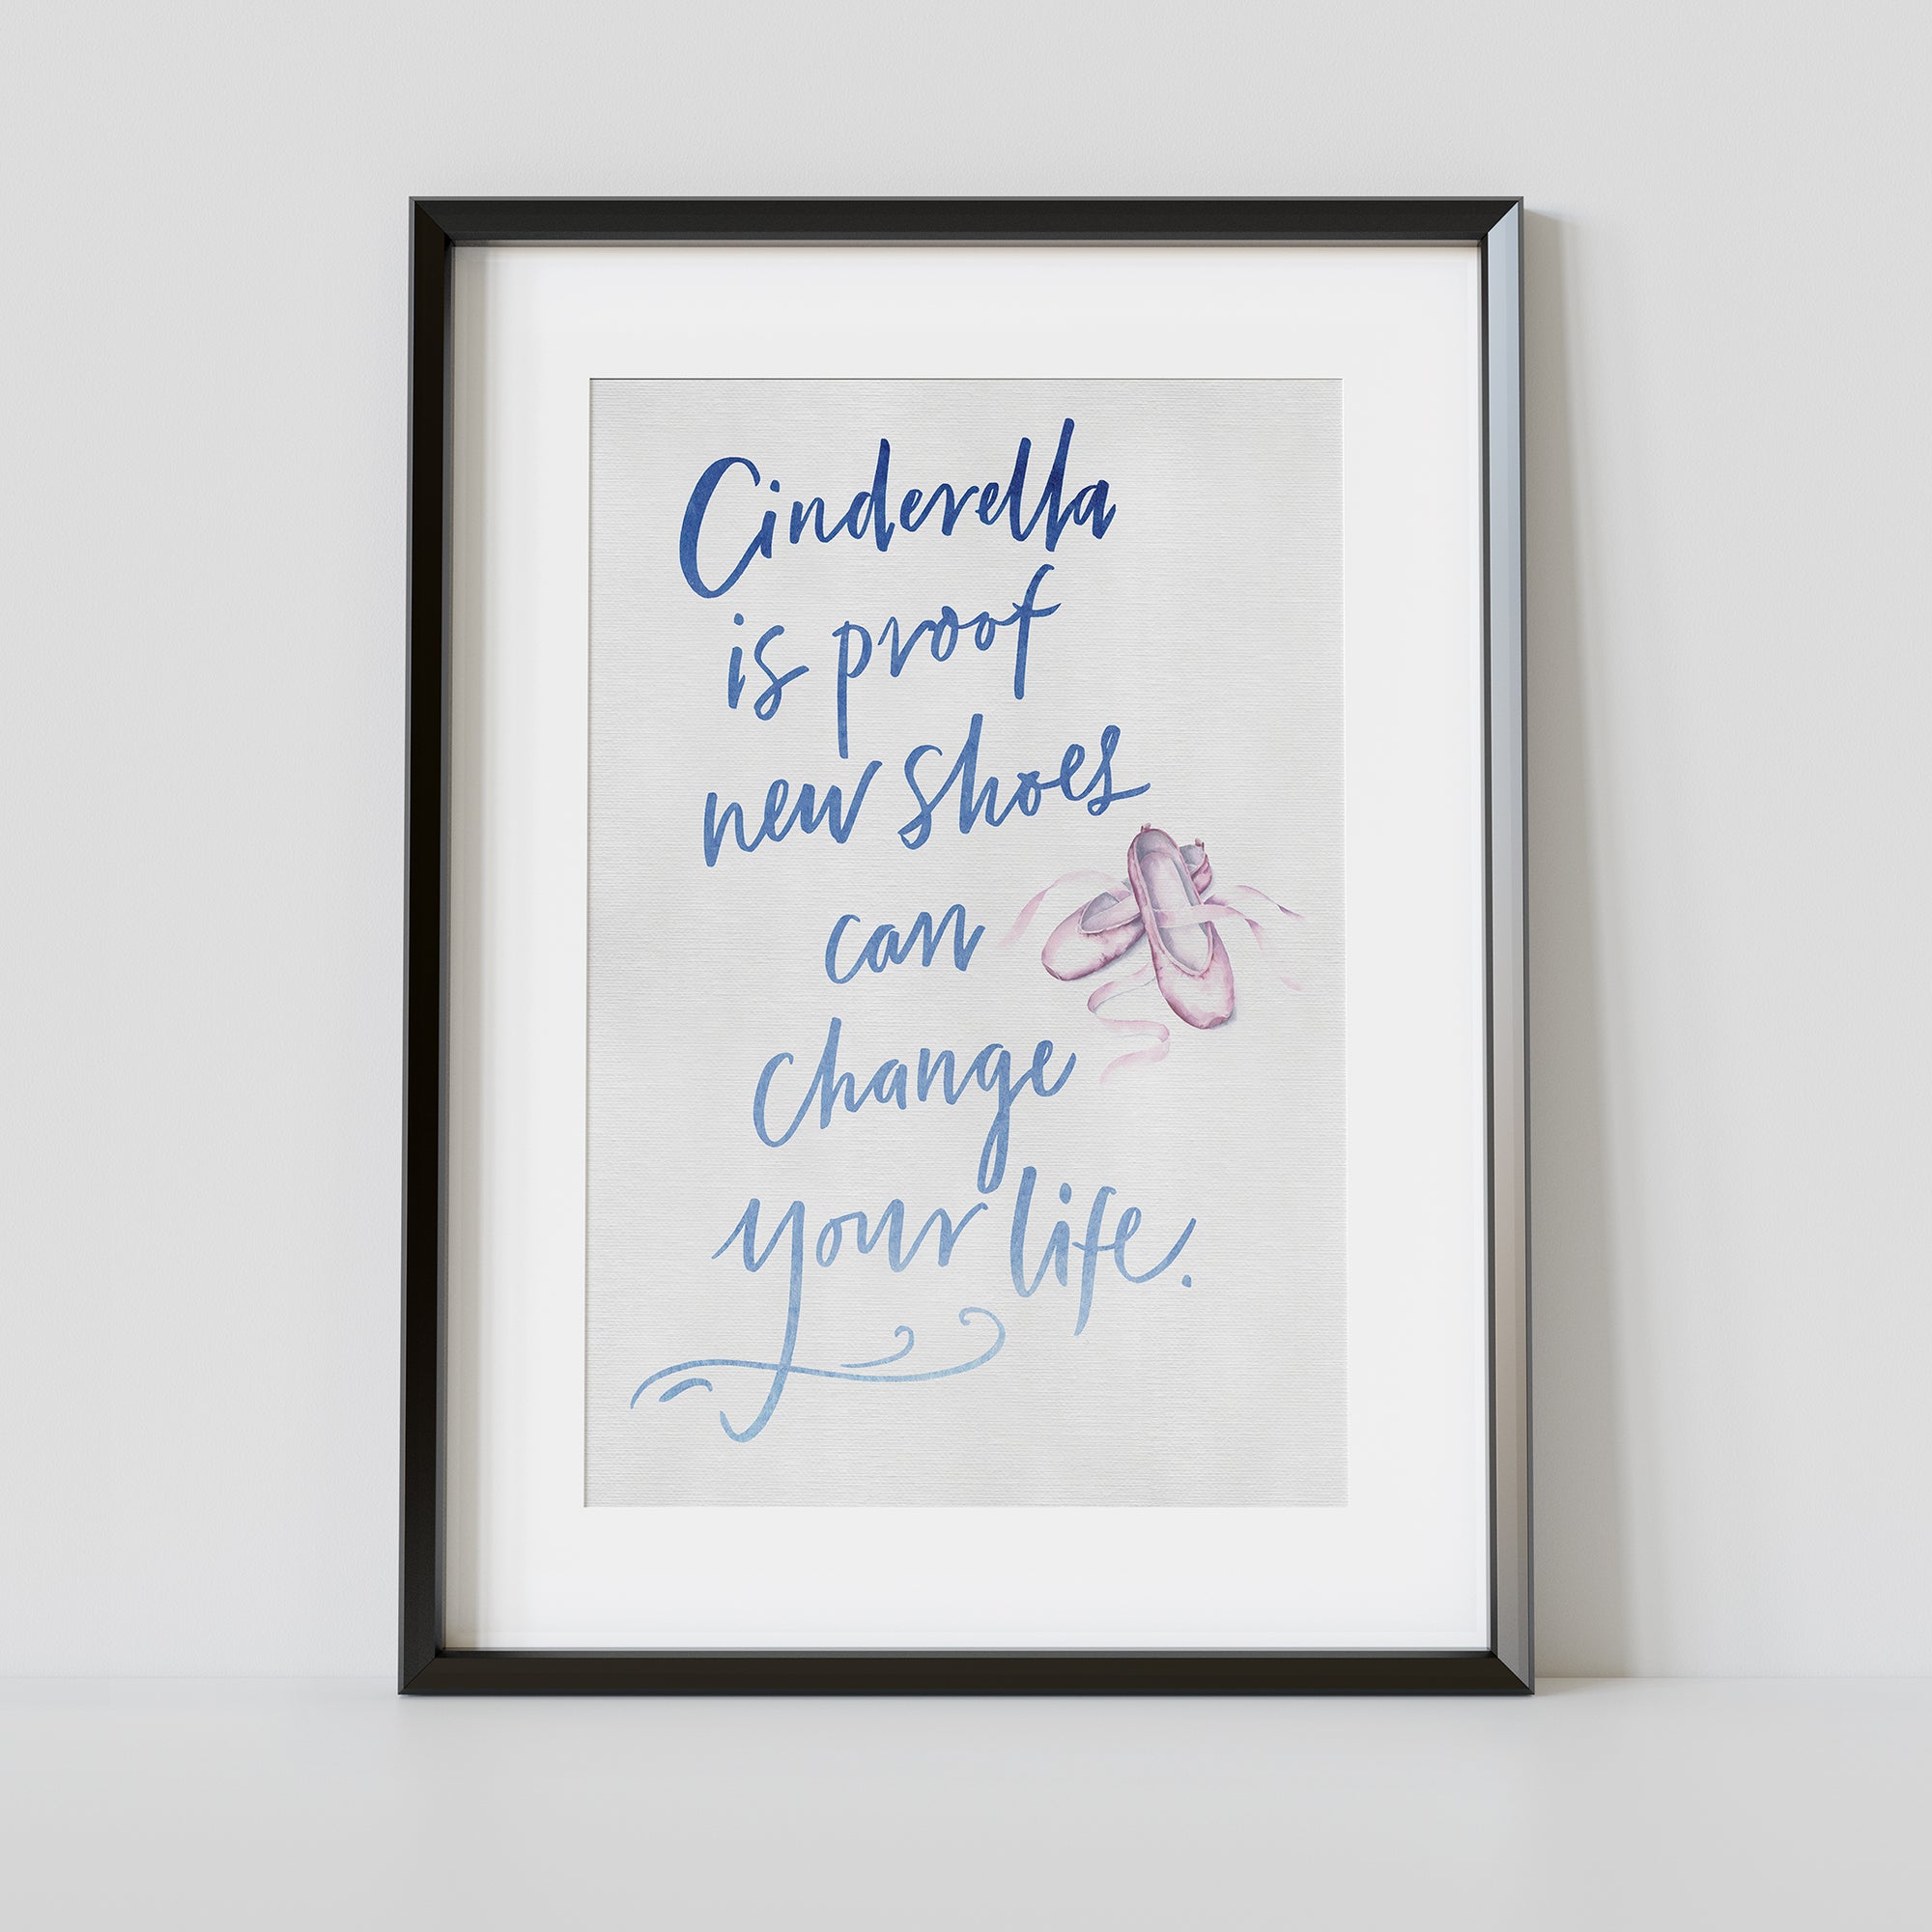 Cinderella
is proof
new shoes
can
change
your life.